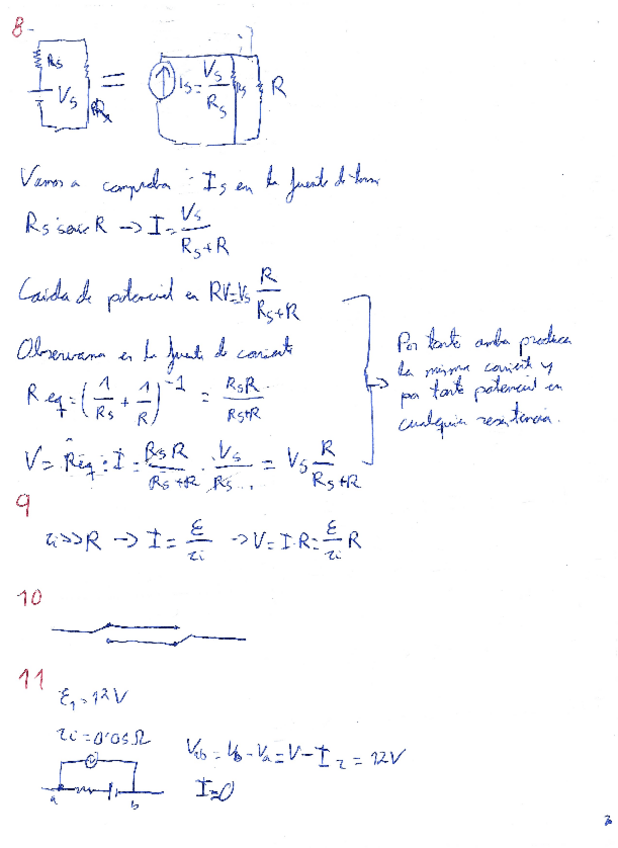 8-
Rs
Vs
R
=
Is = Vs/Rs
Rs
R
Vamos a comprobar Is en la fuente de
Rs serie R -> I = Vs/(Rs+R)
Caida de potencial en R V = Vs R/(Rs+R)
Observamos en la fuente de corriente
Req = (1/Rs + 1/R)^-1 = RsR/(Rs+R)
V = Req · I = RsR/(Rs+R) · Vs/Rs = Vs R/(Rs+R)
Por tanto ambas producen
la misma corriente y
por tanto potencial en
cualquier resistencia.
9
ri >> R -> I = ε/ri -> V = I·R = ε/ri R
10
11
ε1 = 12V
ri = 0'05Ω
a
b
Vab = Vb - Va = V - I r = 12V
I = 0